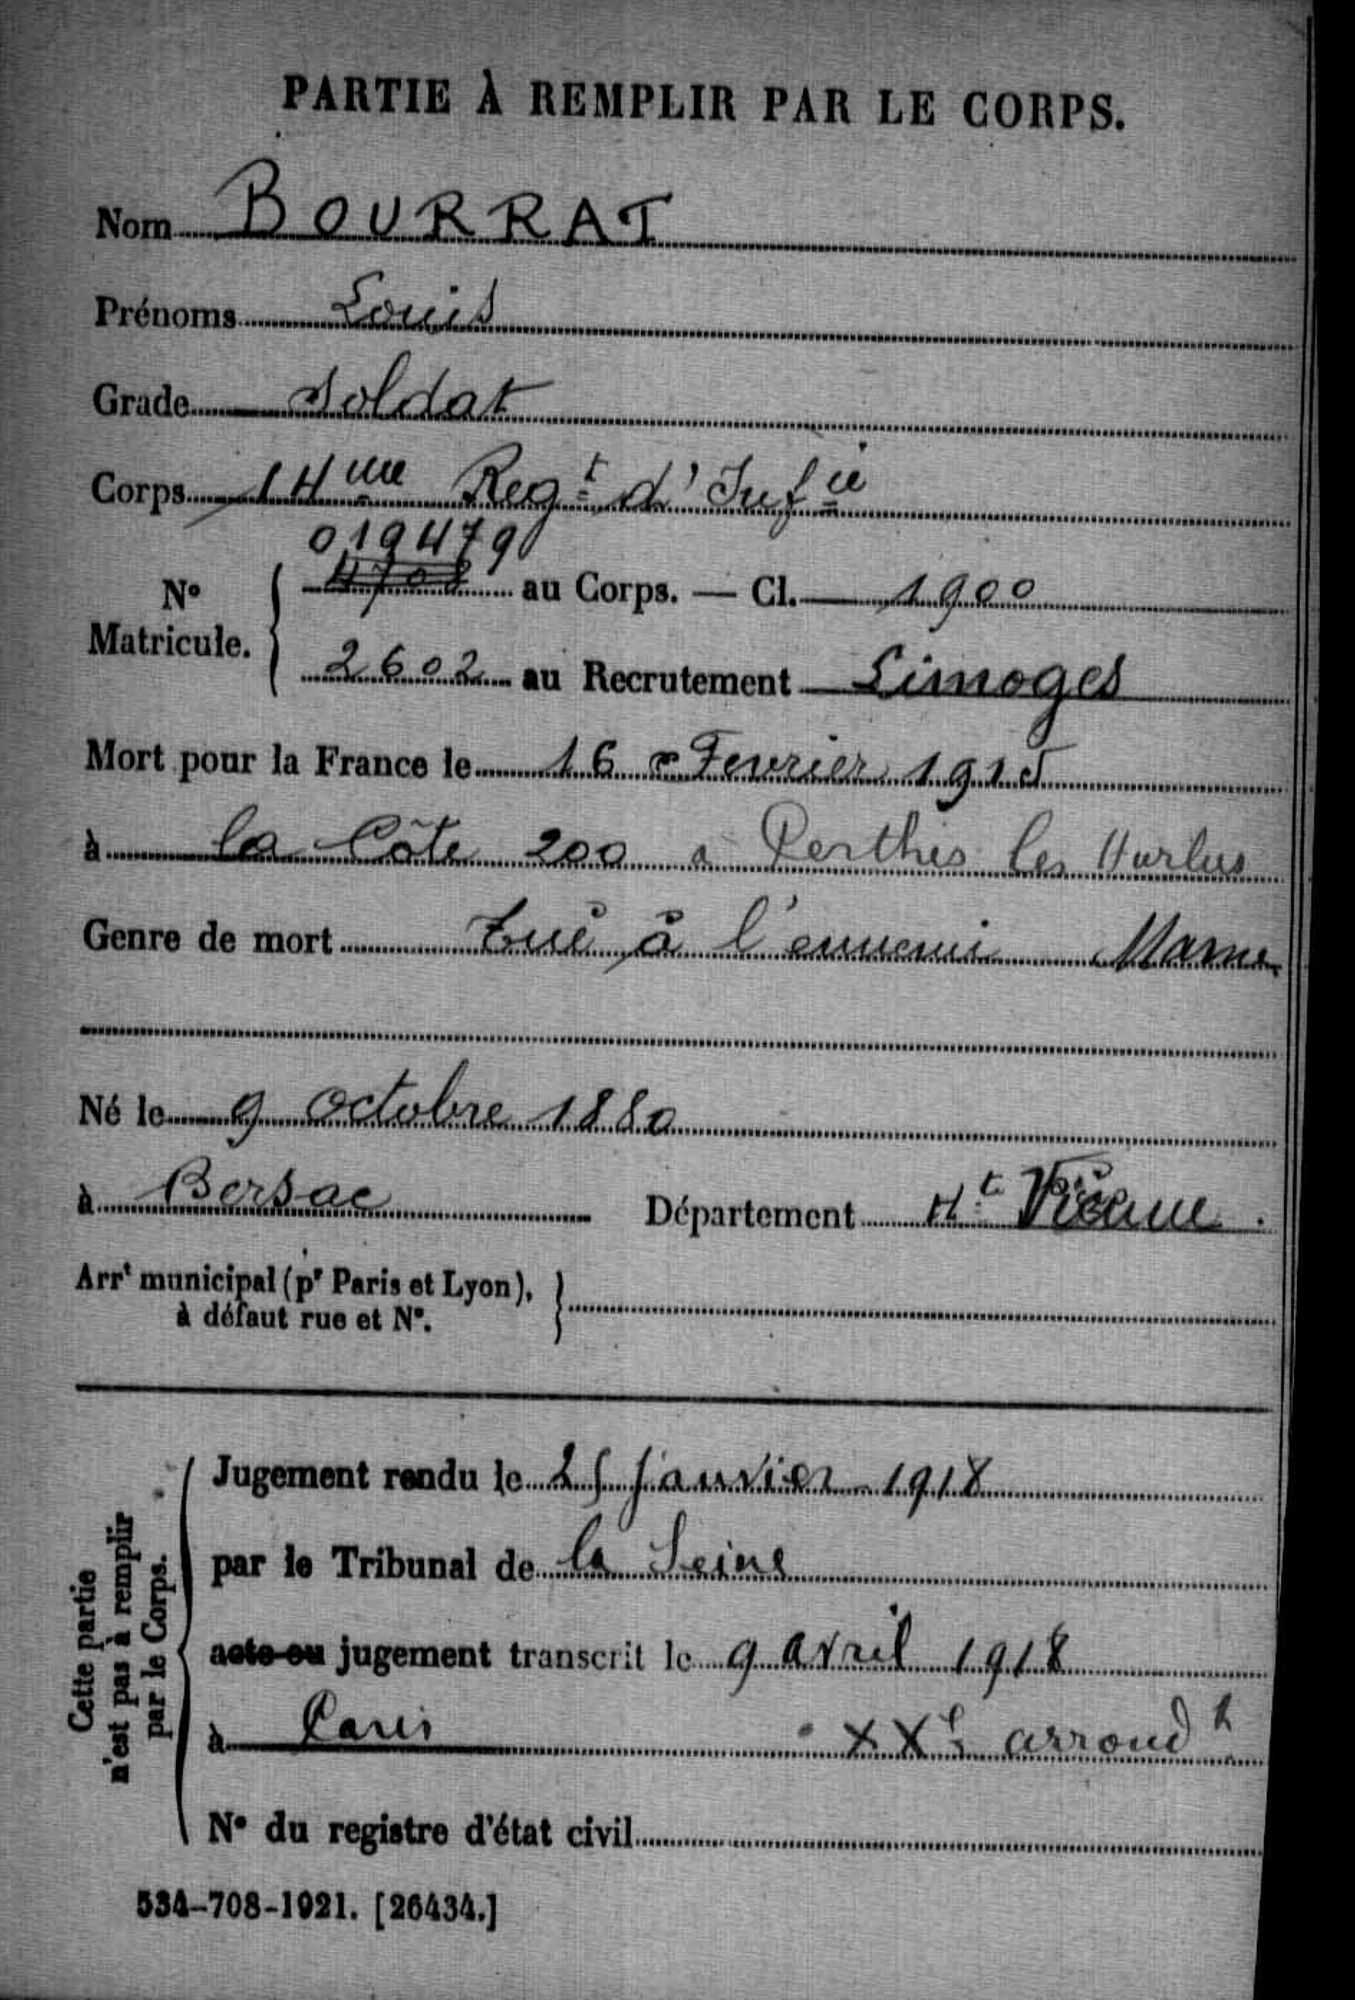 PARTIE À REMPLIR PAR LE CORPS.
Nom BOURRAT
Prénoms Louis
Grade Soldat
Corps 14ème Regt d'Infie
019479
N° Matricule. { 4708 au Corps. — Cl. 1900
2602 au Recrutement Limoges
Mort pour la France le 16 Fevrier 1915
à la Côte 200 a Perthes les Hurlus
Genre de mort Tué à l'ennemi Marne
Né le 9 Octobre 1880
à Bersac Département Hte Vienne.
Arrt municipal (pr Paris et Lyon),
à défaut rue et N°.
Cette partie
n'est pas à remplir
par le Corps.
Jugement rendu le 25 Janvier 1918
par le Tribunal de la Seine
acte ou jugement transcrit le 9 avril 1918
à Paris XXe arrondt
N° du registre d'état civil
534-708-1921. [26434.]